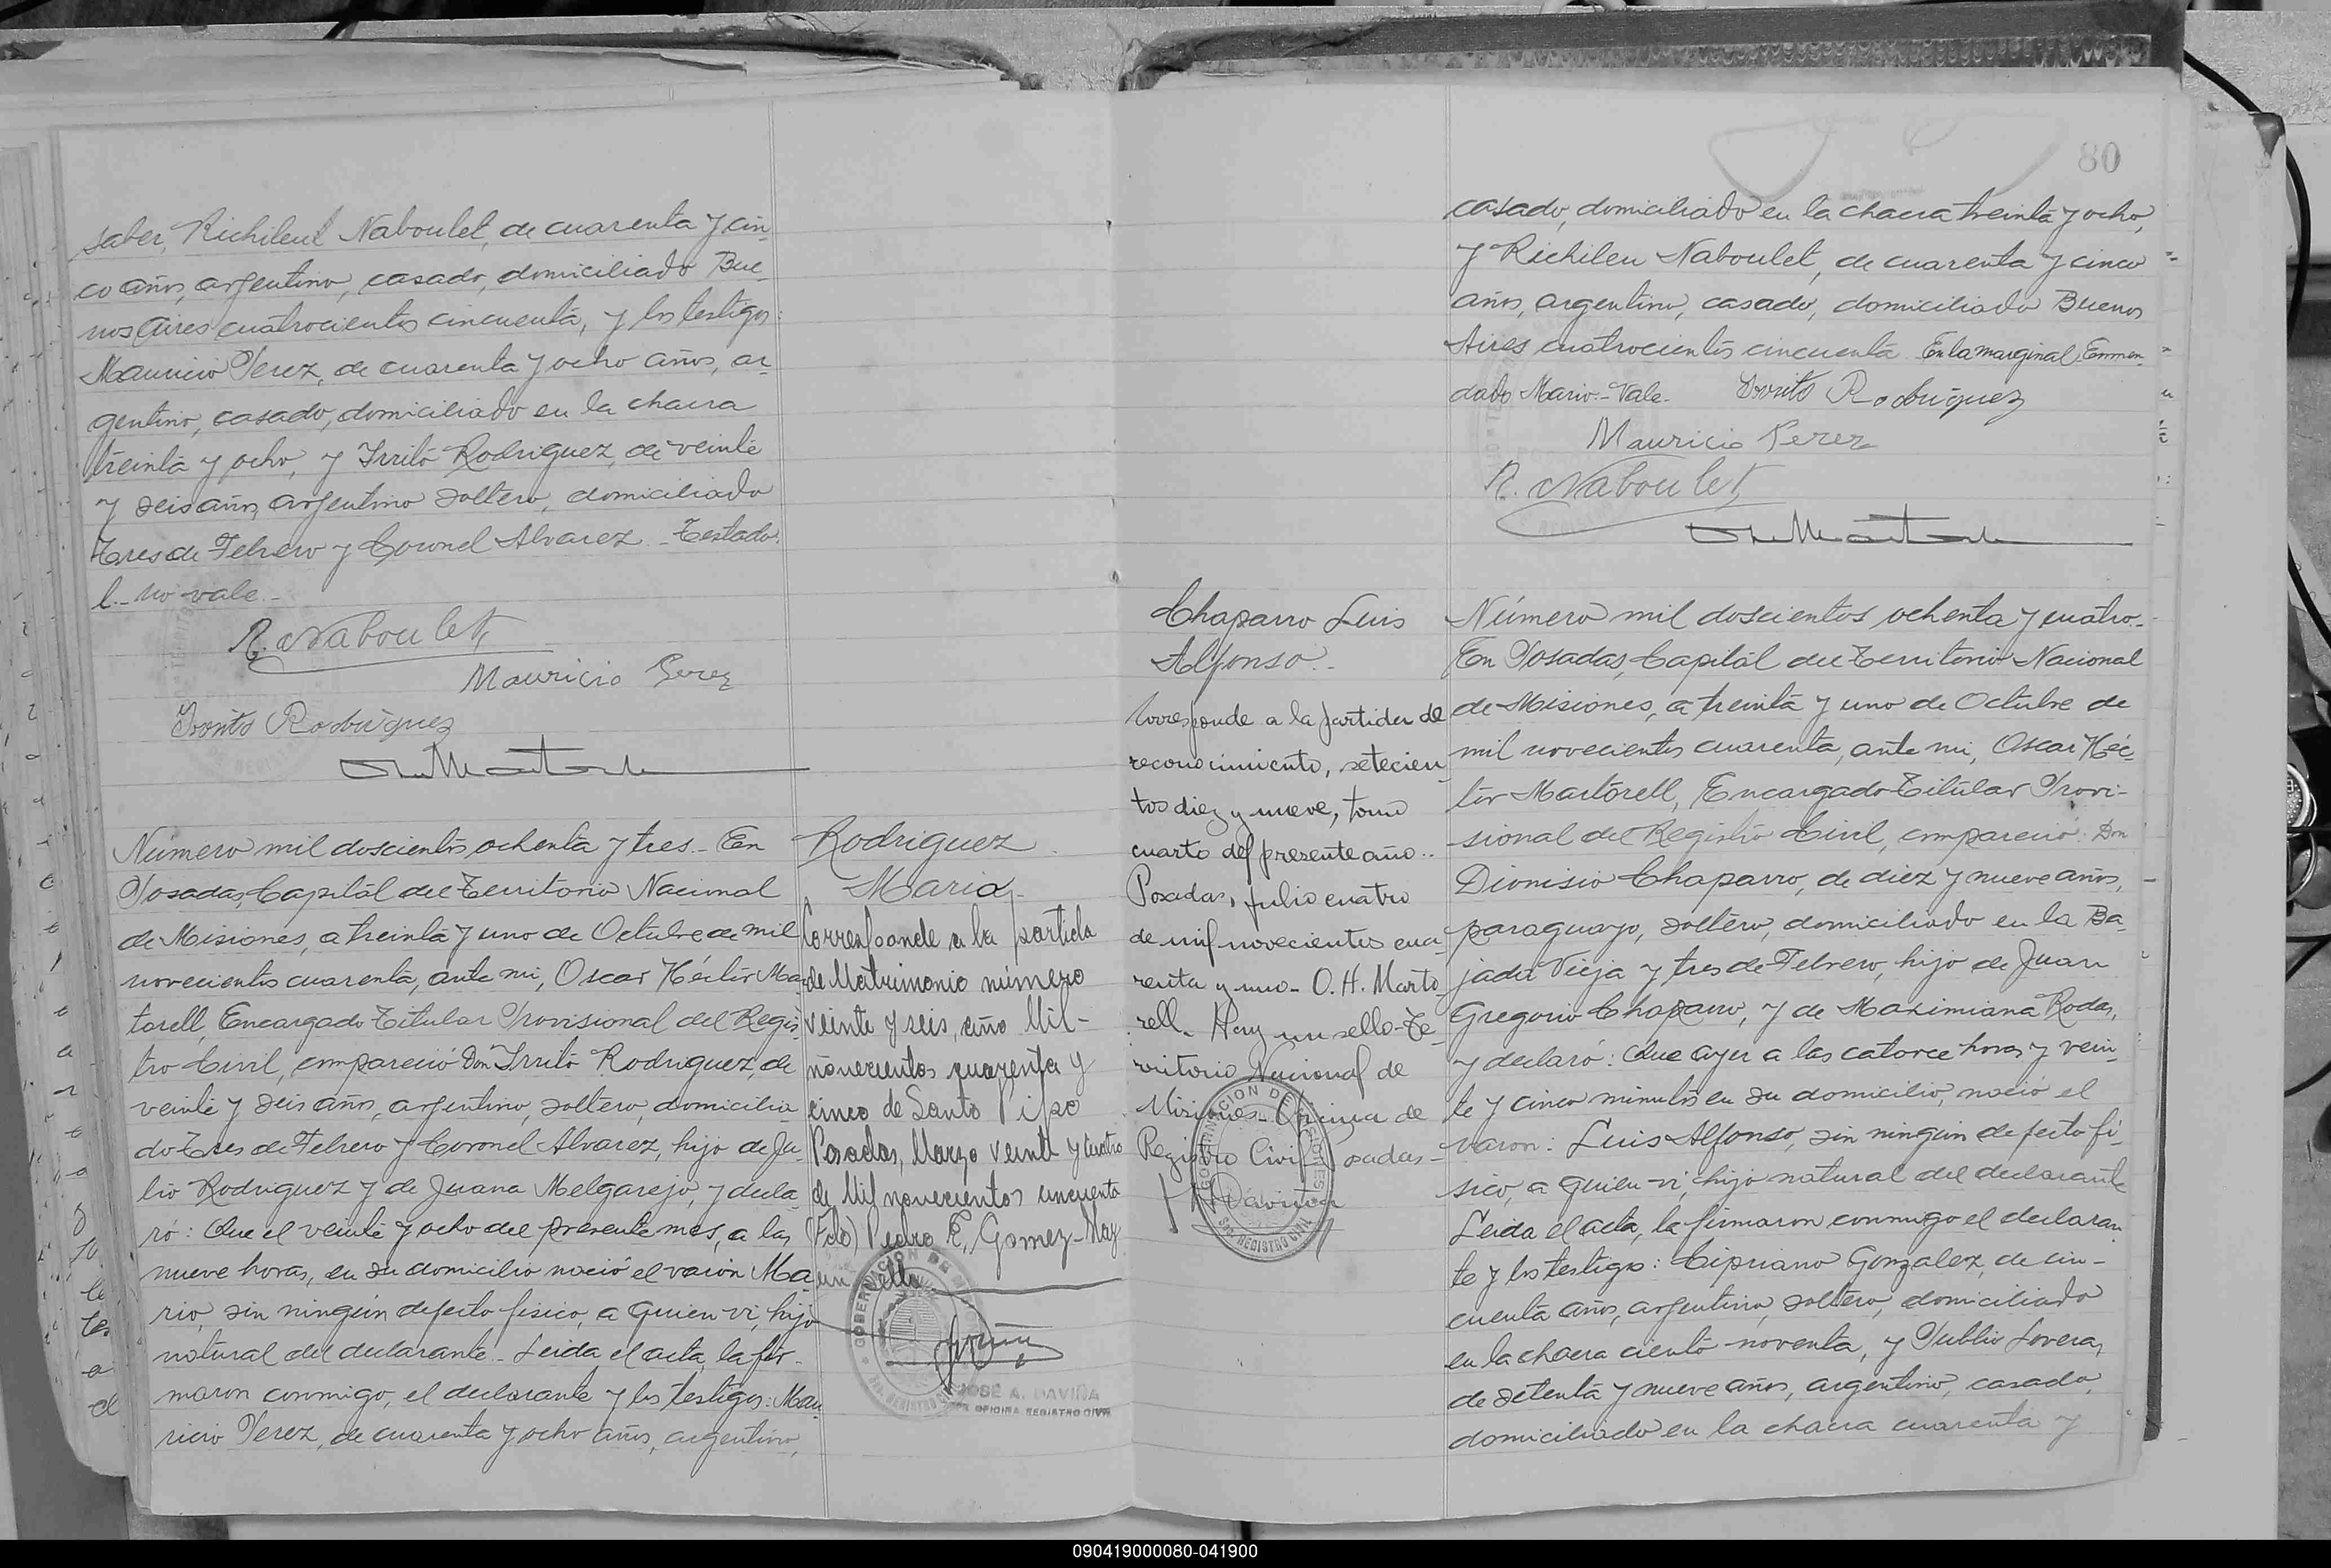 saber, Richileul Naboulet, de cuarenta y cin-
co años, argentino, casado, domiciliado Bue-
nos Aires cuatrocientos cincuenta, y los testigos:
Mauricio Perez, de cuarenta y ocho años, ar-
gentino, casado, domiciliado en la chacra
treinta y ocho, y Irritó Rodriguez, de veinte
y seis años, argentino soltero, domiciliado
Tres de Febrero y Coronel Alvarez - Testado:
l.- no vale.-
R. Naboulet
Mauricio Perez
Rodriguez
Número mil doscientos ochenta y tres.- En
Posadas, Capital del Territorio Nacional
de Misiones, a treinta y uno de Octubre de mil
novecientos cuarenta, ante mi, Oscar Héctor Mar-
torell, Encargado Titular Provisional del Regis-
tro Civil, compareció Don Irritó Rodriguez, de
veinte y seis años, argentino, soltero, domicilia-
do Tres de Febrero y Coronel Alvarez, hijo de Ju-
lio Rodriguez y de Juana Melgarejo, y decla-
ró: Que el veinte y ocho del presente mes, a las
nueve horas, en su domicilio nació el varón Ma-
rio, sin ningún defecto físico, a quien vi, hijo
natural del declarante.- Leida el acta, la fir-
maron conmigo, el declarante y los testigos: Mau-
ricio Perez, de cuarenta y ocho años, argentino,
Rodriguez
Mario.-
Corresponde a la partida
de Matrimonio número
veinte y seis, año Mil-
novecientos cuarenta y
cinco de Santo Pipo
Posadas, Marzo veinte y cuatro
de Mil novecientos cincuenta
(Fdo) Pedro E. Gomez - Hay
un sello
GOBERNACION DE MISIONES
REGISTRO CIVIL
JOSÉ A. DAVIÑA
JEFE OFICINA REGISTRO CIVIL
80
casado, domiciliado en la chacra treinta y ocho,
y Richileu Naboulet, de cuarenta y cinco
años, argentino, casado, domiciliado Buenos
Aires cuatrocientos cincuenta. En la marginal Enmen-
dado Mario.- Vale.
Rodriguez
Mauricio Perez
R. Naboulet
Chaparro Luis
Alfonso.-
Corresponde a la partida de
reconocimiento, setecien-
tos diez y nueve, tomo
cuarto del presente año..
Posadas, julio cuatro
de mil novecientos cua-
renta y uno - O. H. Marto-
rell.- Hay un sello - Te-
rritorio Nacional de
Misiones - Oficina de
Registro Civil Posadas -
Daviña
GOBERNACION DE MISIONES
REGISTRO CIVIL
Número mil doscientos ochenta y cuatro.-
En Posadas, Capital del Territorio Nacional
de Misiones, a treinta y uno de Octubre de
mil novecientos cuarenta, ante mi, Oscar Héc-
tor Martorell, Encargado Titular Provi-
sional del Registro Civil, compareció: Don
Dionisio Chaparro, de diez y nueve años,
paraguayo, soltero, domiciliado en la Ba-
jada Vieja y tres de Febrero, hijo de Juan
Gregorio Chaparro, y de Maximiana Rodas,
y declaró: Que ayer a las catorce horas y vein-
te y cinco minutos en su domicilio, nació el
varon: Luis Alfonso, sin ningún defecto fí-
sico, a quien vi, hijo natural del declarante
Leida el acta, la firmaron conmigo el declaran-
te y los testigos: Cipriano Gonzalez, de cin-
cuenta años, argentino, soltero, domiciliado
en la chacra ciento noventa, y Publio Lovera,
de setenta y nueve años, argentino, casado,
domiciliado en la chacra cuarenta y
090419000080-041900